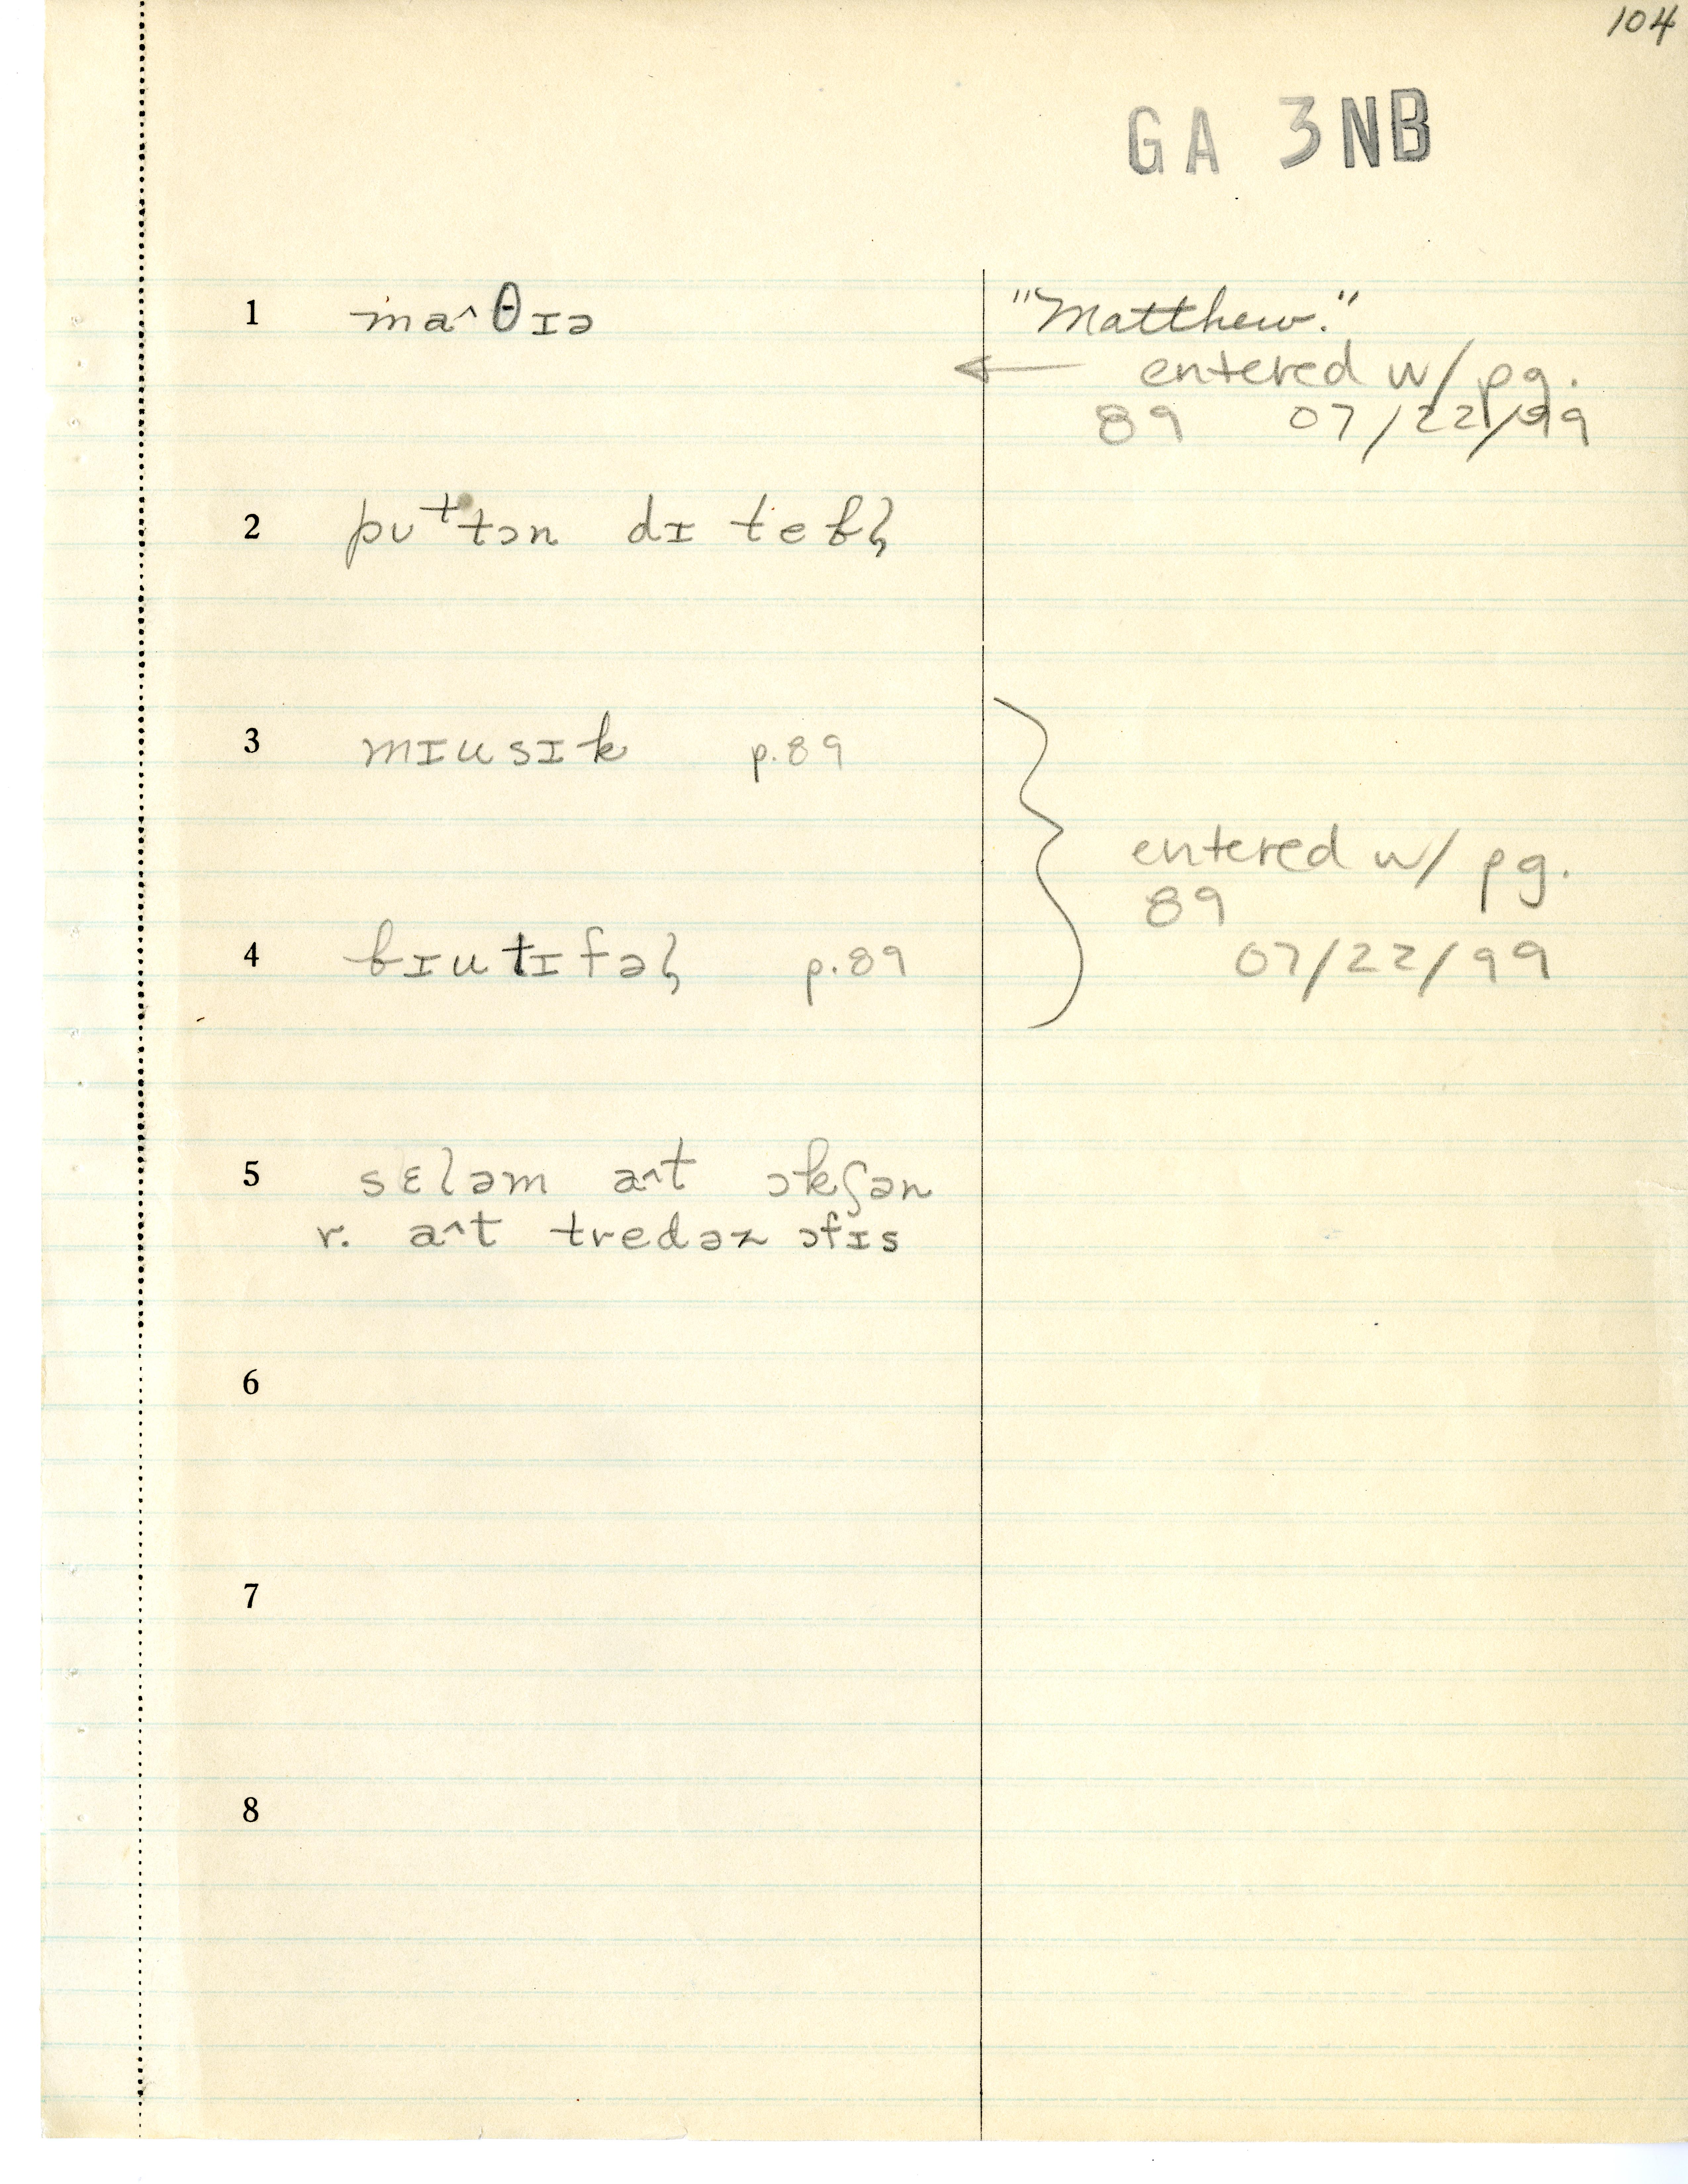 104
GA 3NB
1 maˆθɪə "Matthew."
← entered w/ pg.
89 07/22/99
2 pu ᵗtɔn dɪ tebɮ
3 mɪusɪk p.89
entered w/ pg.
89
07/22/99
4 bɪutɪfəɮ p.89
5 sɛləm aˆt ɔkʃən
r. aˆt tredəz ɔfɪs
6
7
8